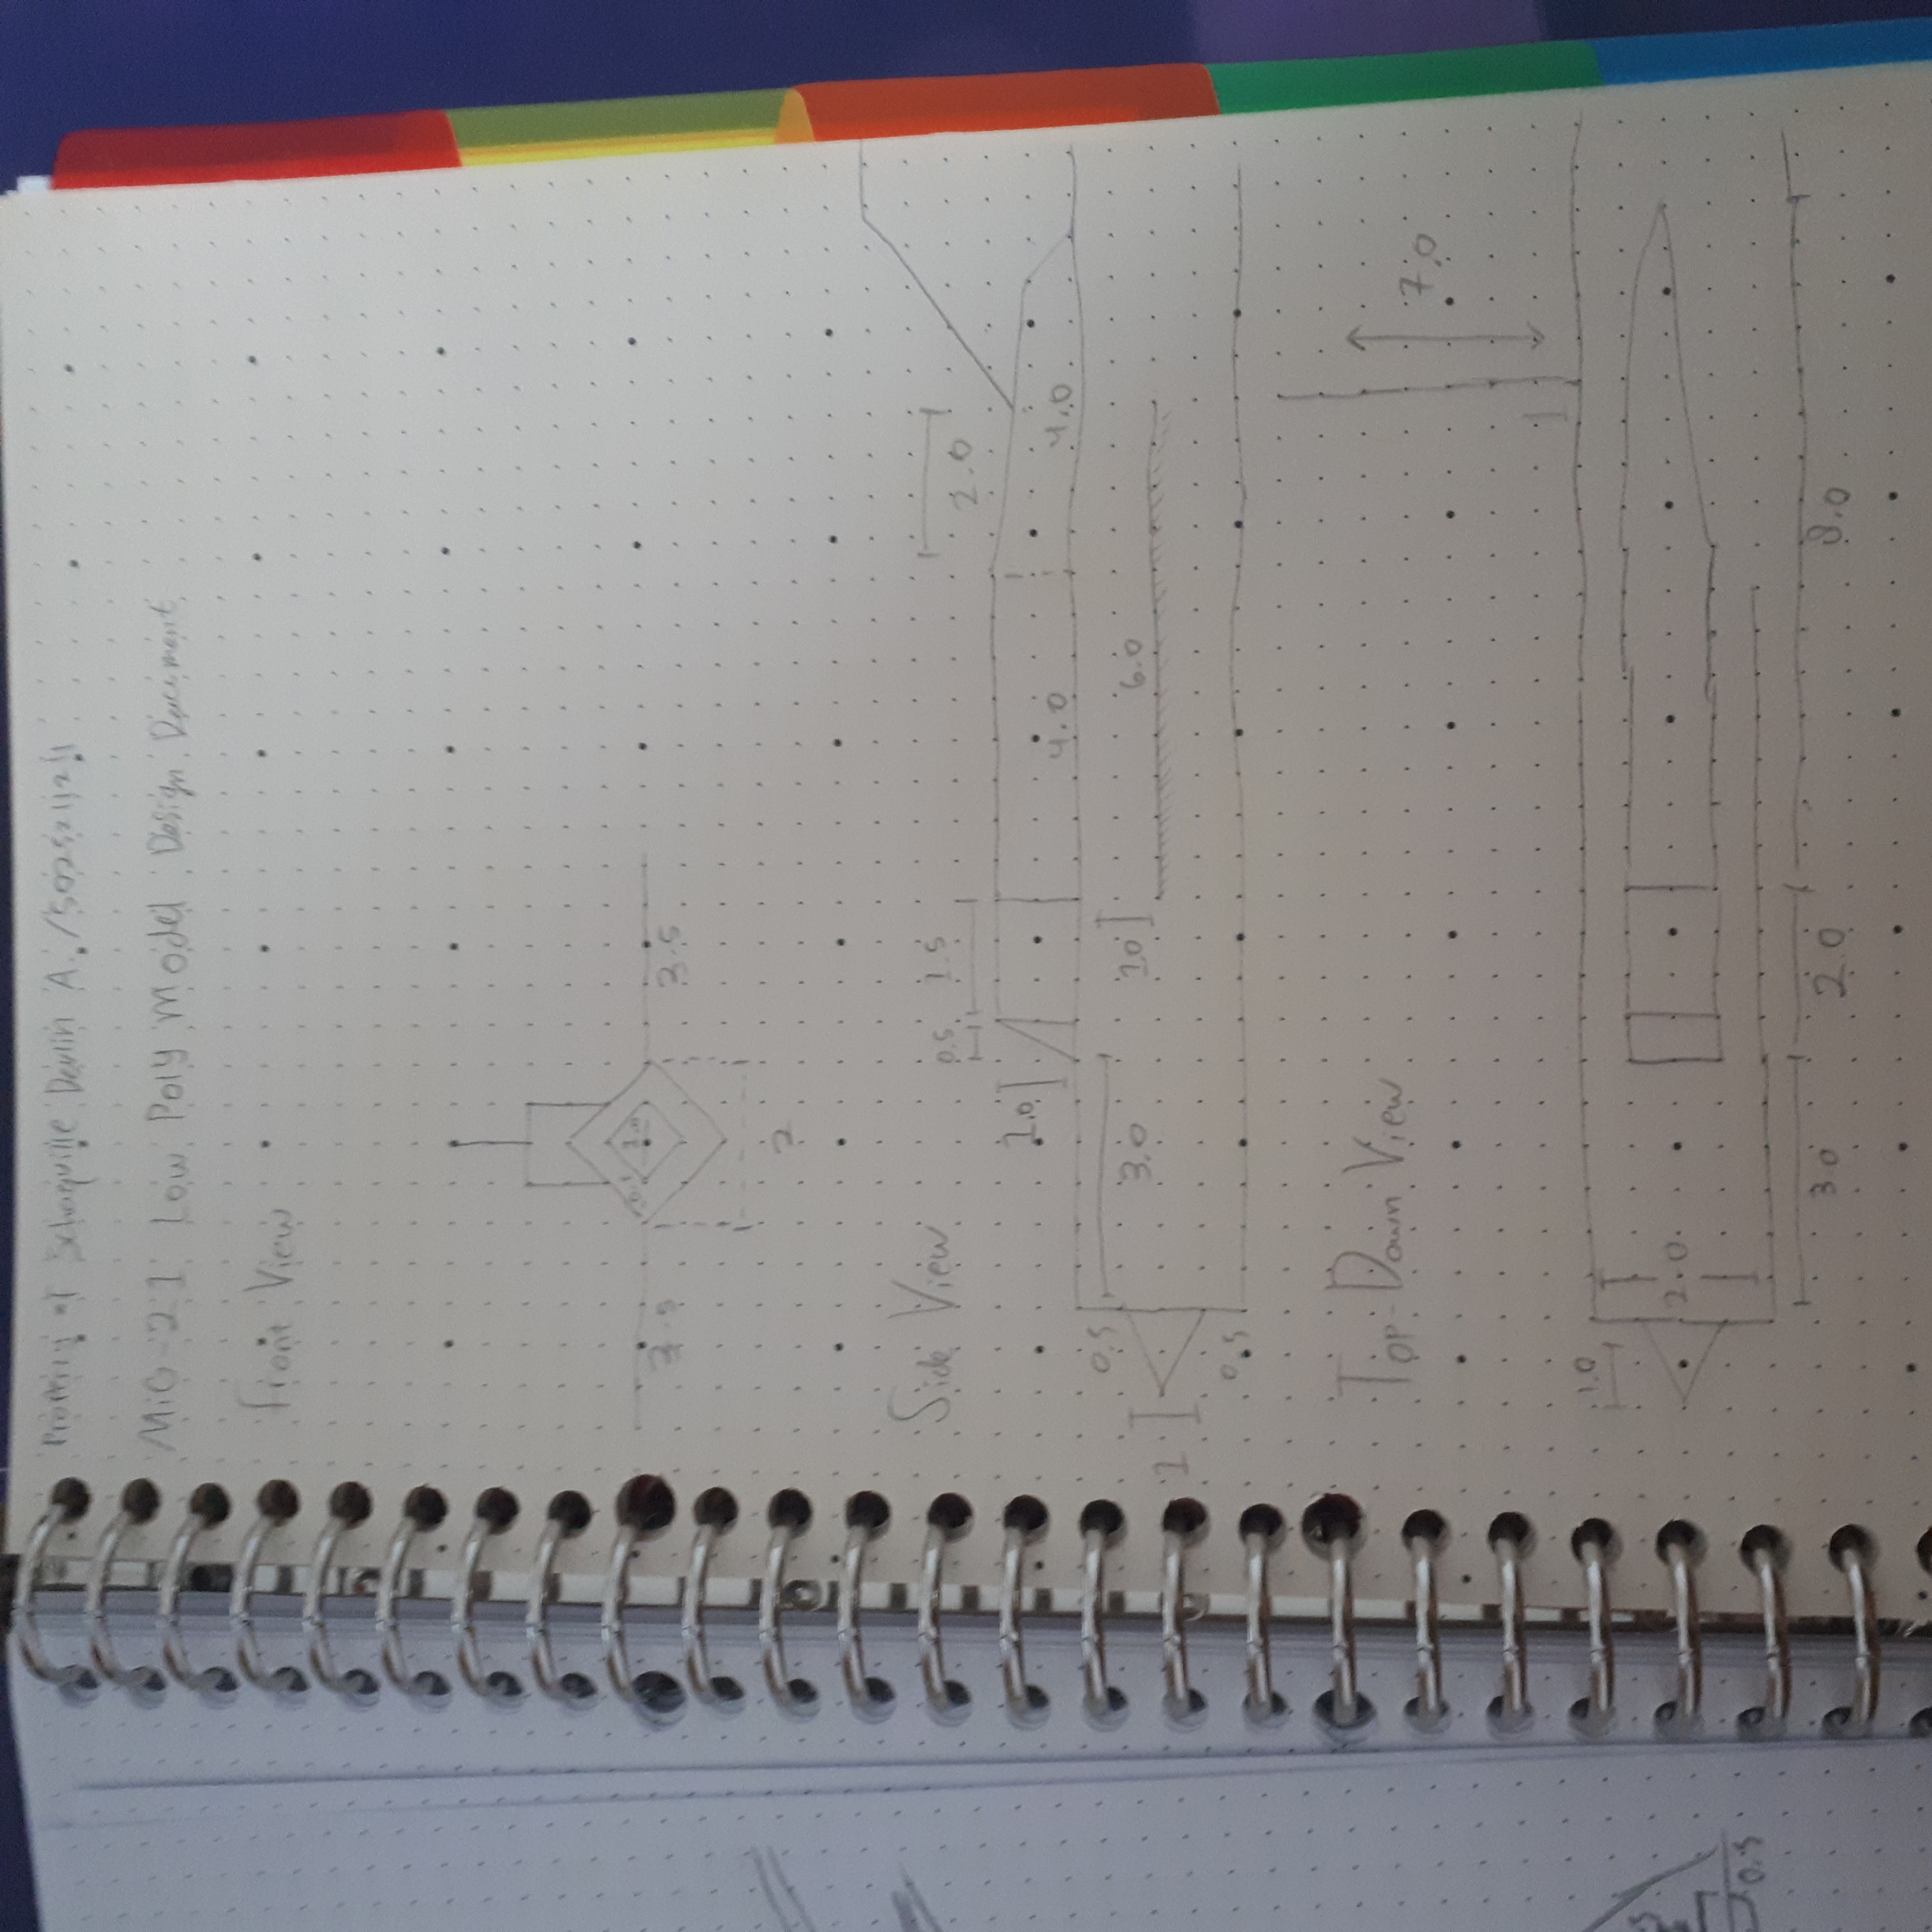 Property of Schaquille Devlin A. / 5025211211
MiG-21 Low Poly Model Design Document
Front View
0.5 1.0
3.5 3.5
2
Side View
0.5 1.5
2.0
1.0
4.0 4.0
0.5
3.0 1.0 6.0
1
0.5
Top-Down View
7.0
1.0
2.0
3.0 2.0 8.0
0.5